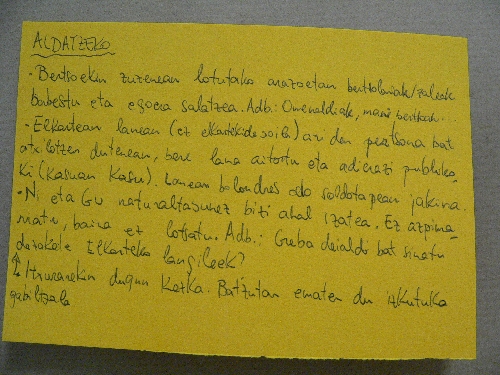 ALDATZEKO
· Bertsoekin zuzenean lotutako arazoetan bertsolariak/zaleak
babestu eta egoera salatzea. Adb.: Omenaldiak,
· Elkartean lanean (ez elkartekide soila) ari den pertsona bat
atxilotzen dutenean, bere lana aitortu eta adierazi publiko
ki (kasuan kasu). Lanean bolondres edo soldatapean jakina.
· Ni eta Gu naturaltasunez bizi ahal izatea. Ez azpima
rratu, baina ez lotsatu. Adb.: Greba deialdi bat sinatu
dezakete Elkarteko langileek?
↑ Itxurarekin dugun kezka. Batzutan ematen du izkutuka
gabiltzala